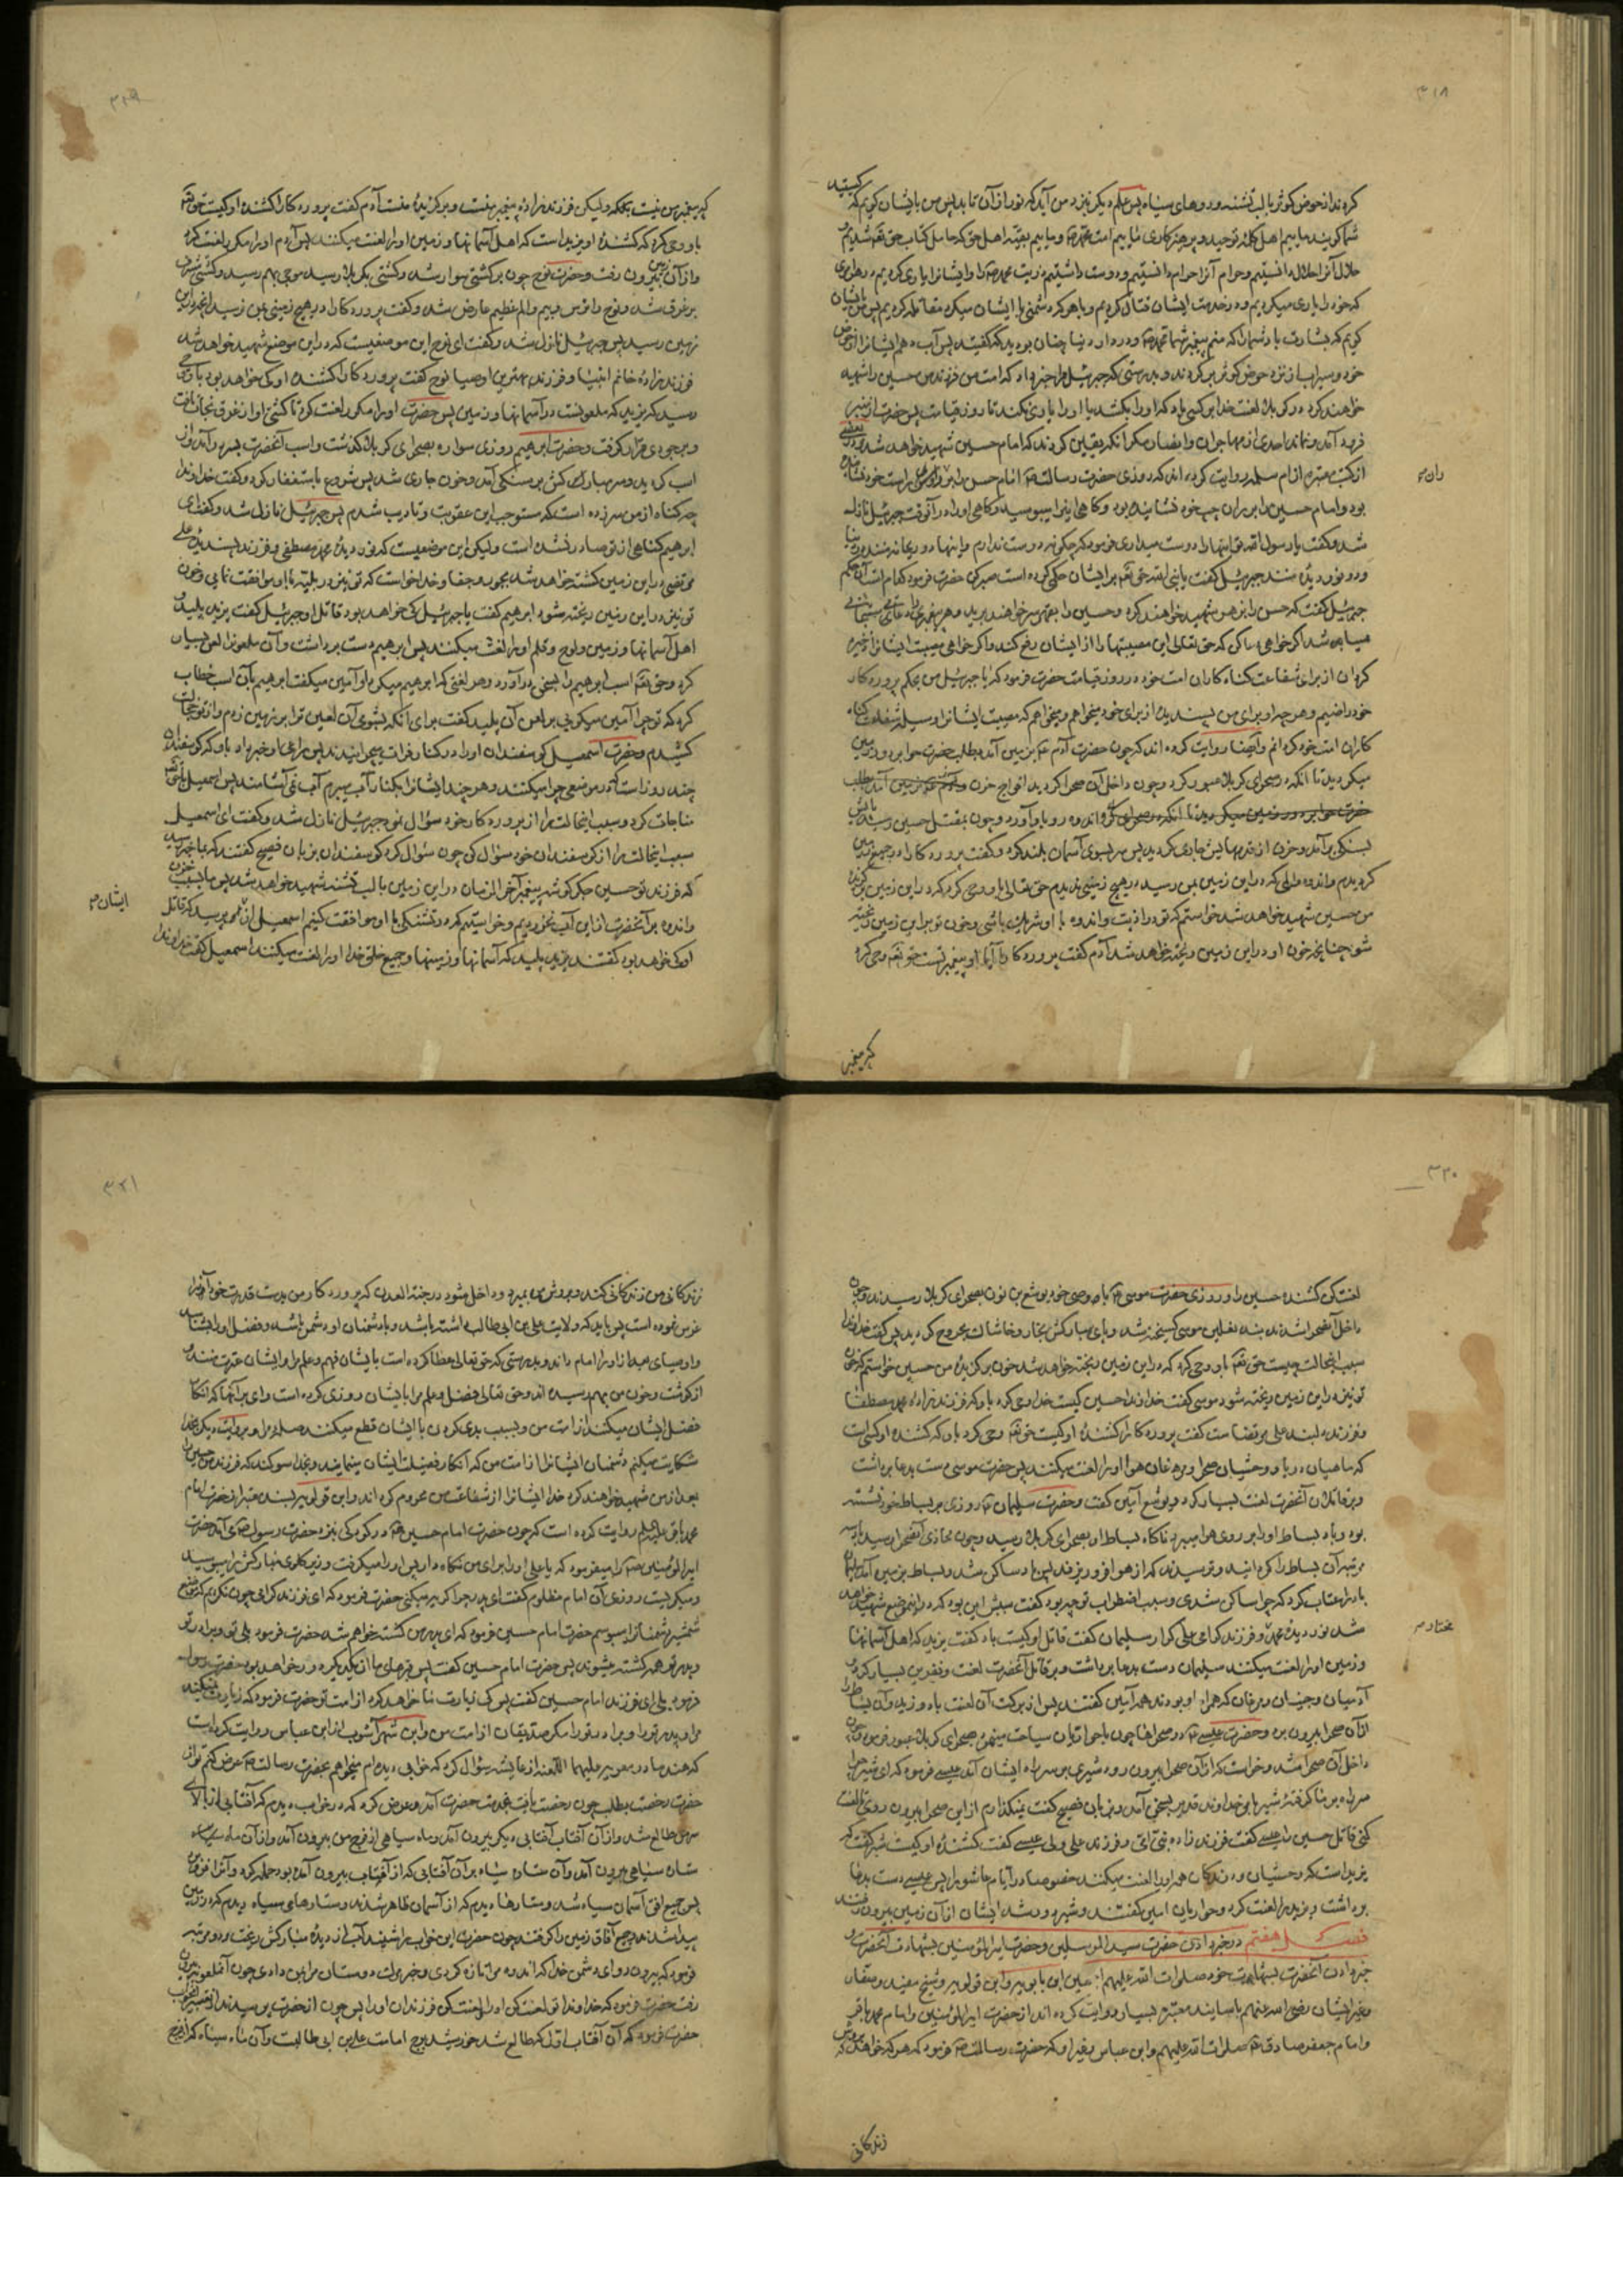 ۳۱۸
کرده‌اند از حوض کوثر با لب تشنه و روهای سیاه پس علم دیگر نزد من آید که نور از آن تابد پس من بایشان گویم که کیستید
شما گویند ماییم اهل کلمهٔ توحید و پرهیزکاری ماییم امت محمد و ماییم بقیهٔ اهل حق که حامل کتاب حق تعه شدیم
حلال آنرا حلال دانستیم و حرام آنرا حرام دانستیم و دوست داشتیم ذریت محمد را و ایشانرا یاری کردیم
که خود را یاری میکردیم و در خدمت ایشان قتال کردیم و با هر که دشمنی با ایشان میکرد مقاتله کردیم پس من بایشان
گویم که بشارت باد شما را که منم پیغمبر شما محمد و در دار دنیا چنان بودید که گفتید پس آب دهم ایشانرا از حوض
خود و سیراب از نزد حوض کوثر برگردند و بدرستی که جبرئیل مرا خبر داد که امت من فرزند من حسین را شهید
خواهند کرد در کربلا لعنت خدا بر کسی باد که او را بکشد یا او را یاری نکند تا روز قیامت پس حضرت از منبر
فرود آمد و نماند احدی از مهاجران و انصار مگر آنکه یقین کردند که امام حسین شهید خواهد شد
از کتب معتبره از ام سلمه روایت کرده‌اند که روزی حضرت رسالت امام حسن را بر ران راست خود نشانده
بود و امام حسین را بر ران چپ خود نشانیده بود و گاهی این را میبوسید و گاهی او را در آنوقت جبرئیل نازل
شد و گفت یا رسول الله تو اینها را دوست میداری فرمود که چگونه دوست ندارم و اینها دو ریحانهٔ منند در دنیا
و دو نور دیدهٔ منند جبرئیل گفت یا نبی الله حق تعه بر ایشان حکمی کرده است صبر کن حضرت فرمود کدام است آن حکم
جبرئیل گفت که حسن را بزهر شهید خواهند کرد و حسین را سر خواهند برید و هر پیغمبری را دعای مستجابی
میباشد اگر خواهی دعا کن که حق تعالی این مصیبتها را از ایشان دفع کند و اگر خواهی مصیبت ایشانرا ذخیره
گردان از برای شفاعت گناه‌کاران امت خود در روز قیامت حضرت فرمود که یا جبرئیل من بحکم پروردگار
خود راضیم و هر چه او برای من پسندیده از برای خود میخواهم و میخواهم که مصیبت ایشانرا وسیلهٔ شفاعت گناه
کاران امت خود گردانم و ایضا روایت کرده‌اند که چون حضرت آدم بزمین آمد بطلب حضرت حوا بر دور زمین
میگردید تا آنکه در صحرای کربلا عبور کرد و چون داخل آن صحرا گردید افواج حزن
و اندوه رو باو آورد و چون بمقتل حسین رسید پایش
بسنگی برآمد و خون از قدمهایش جاری گردید پس سر بسوی آسمان بلند کرد و گفت پروردگارا در جمیع زمین
گردیدم و اندوه و المی که در این زمین بمن رسید در هیچ زمینی ندیدم حق تعالی باو وحی کرد که در این زمین فرزند
من حسین شهید خواهد شد خواستم که تو در اذیت و اندوه با او شریک باشی و خون تو بر این زمین ریخته
شود چنانچه خون او در این زمین ریخته خواهد شد آدم گفت پروردگارا آیا او پیغمبر تست حق تعه وحی کرد
که پیغمبر
۳۱۹
که پیغمبر من نیست بلکه ولیکن فرزندزادهٔ پیغمبر منست و برگزیدهٔ منست آدم گفت پروردگارا کشندهٔ او کیست حق تعه
باو وحی کرد که کشندهٔ او یزید است که اهل آسمانها و زمین او را لعنت میکنند پس آدم او را مکرر لعنت کرد
و از آن زمین بیرون رفت و حضرت نوح چون بر کشتی سوار شد و کشتی بکربلا رسید موجی بهم رسید و کشتی مشرف
بر غرق شد و نوح را ترس و بیم و الم عظیم عارض شد و گفت پروردگارا در هیچ زمینی بمن نرسید
زمین رسید پس جبرئیل نازل شد و گفت ای نوح این موضعیست که در این موضع شهید خواهد شد
فرزندزادهٔ خاتم انبیا و فرزند بهترین اوصیا نوح گفت پروردگارا کشندهٔ او که خواهد بود باو وحی
رسید که یزید که ملعونست در آسمانها و زمین پس حضرت او را مکرر لعنت کرد تا کشتی او از غرق نجات یافت
و بر جودی قرار گرفت و حضرت ابرهیم روزی سواره بصحرای کربلا گذشت و اسب آنحضرت بسر درآمد و از
اسب گردید و سر مبارکش بر سنگی آمد و خون جاری شد پس شروع باستغفار کرد و گفت خداوندا
چه گناه از من سرزده است که مستوجب این عقوبت و تادیب شدم پس جبرئیل نازل شد و گفت ای
ابرهیم گناهی از تو صادر نشده است ولیکن این موضعیست که نور دیدهٔ محمد مصطفی و فرزند پسندیدهٔ علی
مرتضی در این زمین کشته خواهد شد بجور و جفا و خدا خواست که تو نیز در بلیه با او موافقت نمایی و خون
تو نیز در این زمین ریخته شود ابرهیم گفت یا جبرئیل که خواهد بود قاتل او جبرئیل گفت یزید پلید که
اهل آسمانها و زمین و لوح و قلم او را لعنت میکنند پس ابرهیم دست برداشت و آن ملعون را لعن بسیار
کرد و حق تعه اسب ابرهیم را بسخن درآورد و هر لعنی که ابرهیم میکرد او آمین میگفت ابرهیم بآن اسب خطاب
کرد که تو چرا آمین میگویی بر لعن آن پلید گفت برای آنکه بشومی آن لعین ترا بر زمین زدم و از تو خجالت
کشیدم و حضرت اسمعیل گوسفندان او را در کنار فرات میچرانیدند پس راعی او خبر داد باو که گوسفندان
چند روز است در موضعی چرا میکنند و هر چند ایشانرا بکنار آب میبرم آب نمی‌آشامند پس اسمعیل با حق تعه
مناجات کرد و سبب اینحالت را از پروردگار خود سؤال نمود جبرئیل نازل شد و گفت ای اسمعیل
سبب اینحالت را از گوسفندان خود سؤال کن چون سؤال کرد گوسفندان بزبان فصیح گفتند که بما خبر رسیده
که فرزند تو حسین جگرگوشهٔ پیغمبر آخرالزمان در این زمین با لب تشنه شهید خواهد شد پس ما بسبب حزن
و اندوه بر آنحضرت از این آب نخوردیم و خواستیم که در تشنگی با او موافقت کنیم اسمعیل از ایشان پرسید که قاتل
او که خواهد بود گفتند یزید پلید که آسمانها و زمینها و جمیع خلق خدا او را لعنت میکنند اسمعیل گفت خداوندا
۳۲۰
لعنت کن کشندهٔ حسین را و روزی حضرت موسی با وصی خود یوشع بن نون بصحرای کربلا رسیدند و چون
داخل آنصحرا شدند بند نعلین موسی گسیخته شد و پای مبارکش بخار و خاشاک مجروح گردید پس گفت خداوندا
سبب اینحالت چیست حق تعه باو وحی کرد که در این زمین ریخته خواهد شد خون برگزیدهٔ من حسین خواستم که خون
تو نیز در این زمین ریخته شود موسی گفت خداوندا حسین کیست خدا وحی کرد باو که فرزندزادهٔ محمد مصطفا
و فرزند دلبند علی مرتضا ست گفت پروردگارا کشندهٔ او کیست حق تعه وحی کرد باو که کشندهٔ او کسی است
که ماهیان دریا و وحشیان صحرا و مرغان هوا او را لعنت میکنند پس حضرت موسی دست بدعا برداشت
و بر قاتلان آنحضرت لعنت بسیار کرد و یوشع آمین گفت و حضرت سلیمان روزی بر بساط خود نشسته
بود و باد بساط او را بر روی هوا میبرد ناگاه بساط او بصحرای کربلا رسید و چون محاذی آنصحرا رسید باد سه
مرتبه آن بساط را گردانید و ترسیدند که از هوا فرو ریزند پس باد ساکن شد و بساط بزمین آمد سلیمان
باد را عتاب کرد که چرا ساکن شدی و سبب اضطراب تو چه بود گفت سببش این بود که در این موضع شهید خواهد
شد نور دیدهٔ محمد مختار و فرزند گرامی علی کرار سلیمان گفت قاتل او کیست باد گفت یزید که اهل آسمانها
و زمین او را لعنت میکنند سلیمان دست بدعا برداشت و بر قاتل آنحضرت لعنت و نفرین بسیار کرد و
آدمیان و جنیان و مرغان که همراه او بودند همه آمین گفتند پس از برکت آن لعنت باد وزید و آن بساط را
از آن صحرا بیرون برد و حضرت عیسی در صحراها چون با حواریان سیاحت مینمود بصحرای کربلا عبور فرمود چون
داخل آن صحرا شد و خواست که از آن صحرا بیرون رود شیری بر سر راه ایشان آمد عیسی فرمود که ای شیر چرا
سر راه بر ما گرفتهٔ شیر بامر خداوند قدیر بسخن آمد و بزبان فصیح گفت نمیگذارم از این صحرا بیرون روی تا لعنت
کنی قاتل حسین را عیسی گفت فرزندزادهٔ نبی امی و فرزند علی ولی عیسی گفت کشندهٔ او کیست شیر گفت که
یزید است که وحشیان و درندگان همه او را لعنت میکنند خصوصا در ایام عاشورا پس عیسی دست بدعا
برداشت و یزید را لعنت کرد و حواریان امین گفتند و شیر دور شد ایشان از آن زمین بیرون رفتند
فصل هفتم در خبر دادن حضرت سید المرسلین و حضرت امیرالمؤمنین بشهادت آنحضرت و
خبر دادن آنحضرت بشهادت خود صلوات الله علیهم اجمعین ابن بابویه و ابن قولویه و شیخ مفید و
و غیر ایشان رضی الله عنهم باسانید معتبرهٔ بسیار روایت کرده‌اند از حضرت امیرالمؤمنین و امام محمد باقر
و امام جعفر صادق صلوات الله علیهم و ابن عباس و غیر او که حضرت رسالت فرمود که هر که خواهد که بروش
زندگانی
۳۲۱
زندگانی من زندگانی کند و بروش من بمیرد و داخل شود در جنة العدن که پروردگار من بدست قدرت خود آنرا
غرس نموده است پس باید که ولایت علی بن ابی طالب داشته باشد و با دشمنان او دشمن باشد و فضل او را بشناسد
و اوصیای بعد از او را امام داند و بدرستی که حق تعالی عطا کرده است بایشان فهم و علم مرا و ایشان عترت منند و
از گوشت و خون من بهم رسیده‌اند و حق تعالی فضل و علم مرا بایشان روزی کرده است وای بر آنها که انکار
فضل ایشان میکنند از امت من و بسبب بدی کردن با ایشان قطع میکنند صلهٔ مرا و بروایت دیگر بخدا
شکایت میکنم دشمنان ایشانرا از امت من که انکار فضیلت ایشان مینمایند و بخدا سوگند که فرزندم حسین را
بعد از من شهید خواهند کرد خدا ایشانرا از شفاعت من محروم گرداند و ابن قولویه بسند معتبر از حضرت امام
محمد باقر علیه السلام روایت کرده است که چون حضرت امام حسین در کودکی بنزد حضرت رسول می‌آمد حضرت
امیرالمؤمنین را میفرمود که یا علی او را برای من نگاه دار پس او را میگرفت و زیر گلوی مبارکش را میبوسید
و میگریست روزی آن امام مظلوم گفت ای پدر چرا گریه میکنی حضرت فرمود که ای فرزند گرامی چون نگریم که موضع
شمشیر دشمنانرا میبوسم حضرت امام حسین فرمود که ای پدر من کشته خواهم شد حضرت فرمود بلی تو و برادر تو
و پدر تو همه کشته میشوند پس حضرت امام حسین گفت پس قبرهای ما از یکدیگر دور خواهد بود حضرت رسول
فرمود بلی ای فرزند امام حسین گفت پس که زیارت ما خواهد کرد از امت تو حضرت فرمود که زیارت نمیکند
مرا و پدر ترا و برادر ترا و ترا مگر صدیقان از امت من و ابن شهرآشوب از ابن عباس روایت کرده است
که هند مادر معویه علیهما اللعنه از عایشه سؤال کرد که خوابی دیده‌ام میخواهم بحضرت رسالت عرض کنم تو از
حضرت رخصت بطلب چون رخصت یافت بخدمت حضرت آمد و عرض کرد که در خواب دیدم که آفتابی از بالای
سرم طالع شد و از آن آفتاب آفتابی دیگر بیرون آمد و ماه سیاهی از فرج من بیرون آمد و از آن ماه سیاه
ستاره سیاهی بیرون آمد و آن ستاره سیاه بر آن آفتابی که از آفتاب بیرون آمده بود حمله کرد و آنرا فرو برد
پس جمیع افق آسمان سیاه شد و ستارها دیدم که از آسمان ظاهر شدند و ستارهای سیاه دیدم که در زمین
پیدا شدند و جمیع آفاق زمین را گرفتند چون حضرت این خواب را شنید آب از دیدهٔ مبارکش ریخت و دو مرتبه
فرمود که بیرون رو ای دشمن خدا که اندوه مرا تازه کردی و خبر مرگ دوستان مرا بمن دادی چون آن ملعونه بیرون
رفت حضرت فرمود که خداوندا تو لعنت کن او را و لعنت کن فرزندان او را پس چون از حضرت پرسیدند از تفسیر آن خواب
حضرت فرمود که آن آفتاب اول که طالع شد خورشید برج امامت علی بن ابی طالبست و آن ماه سیاه که از فرج